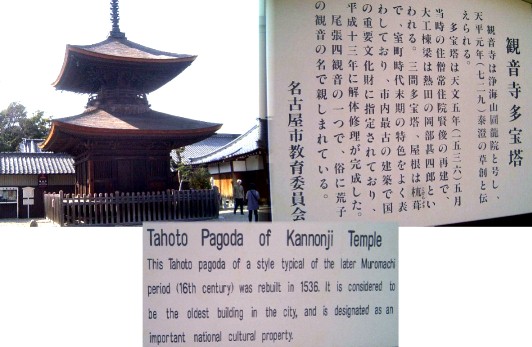 観音寺多宝塔
観音寺は浄海山圓龍院と号し、
天平元年(七二九)泰澄の草創と伝
えられる。
多宝塔は天文五年(一五三六)五月
当時の住僧常住院賢俊の再建で、
大工棟梁は熱田の岡部甚四郎とい
われる。三間多宝塔、屋根は杮葺
で、室町時代末期の特色をよく表
わしており、市内最古の建築で国
の重要文化財に指定されており、
平成十三年に解体修理が完成した。
尾張四観音の一つで、俗に荒子
の観音の名で親しまれている。
名古屋市教育委員会
Tahoto Pagoda of Kannonji Temple
This Tahoto pagoda of a style typical of the later Muromachi
period (16th century) was rebuilt in 1536. It is considered to
be the oldest building in the city, and is designated as an
important national cultural property.